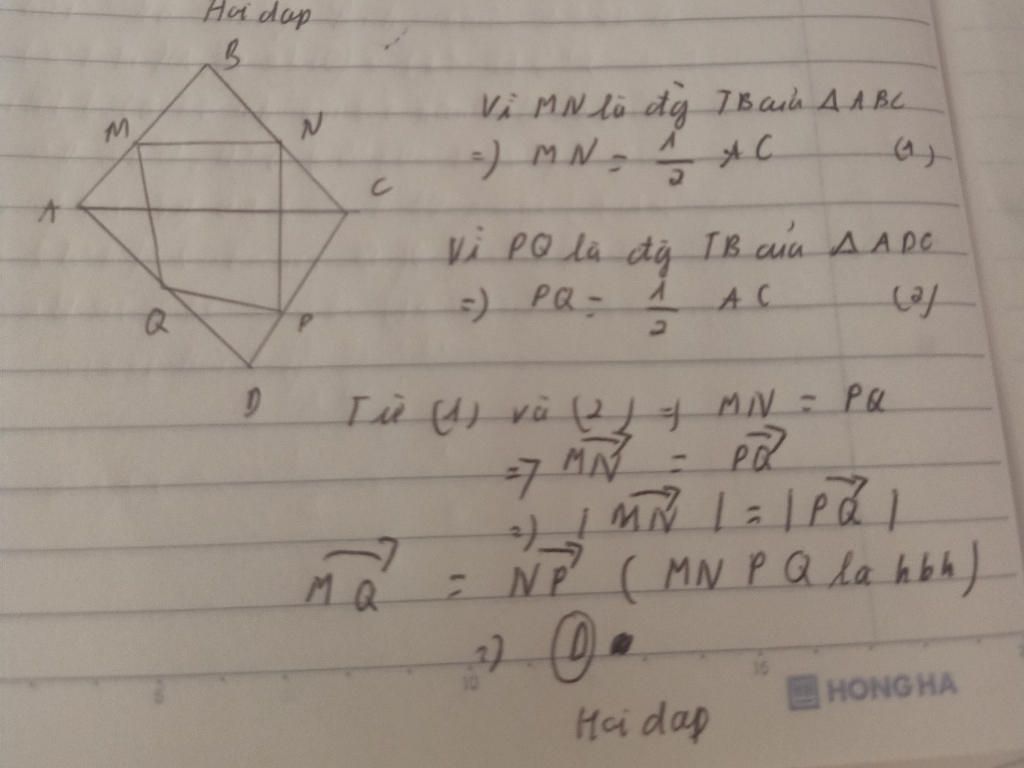 Hoi dap
B
M
N
A
C
Q
P
D
Vì MN là đg TB của Δ ABC
=) MN = 1/2 AC (1)
Vì PQ là đg TB của Δ ADC
=) PQ = 1/2 AC (2)
Từ (1) và (2) =) MN = PQ
=> \overrightarrow{MN} = \overrightarrow{PQ}
=) |\overrightarrow{MN}| = |\overrightarrow{PQ}|
\overrightarrow{MQ} = \overrightarrow{NP} (MNPQ la hbh)
=) D
5 10 15
HONG HA
Hoi dap